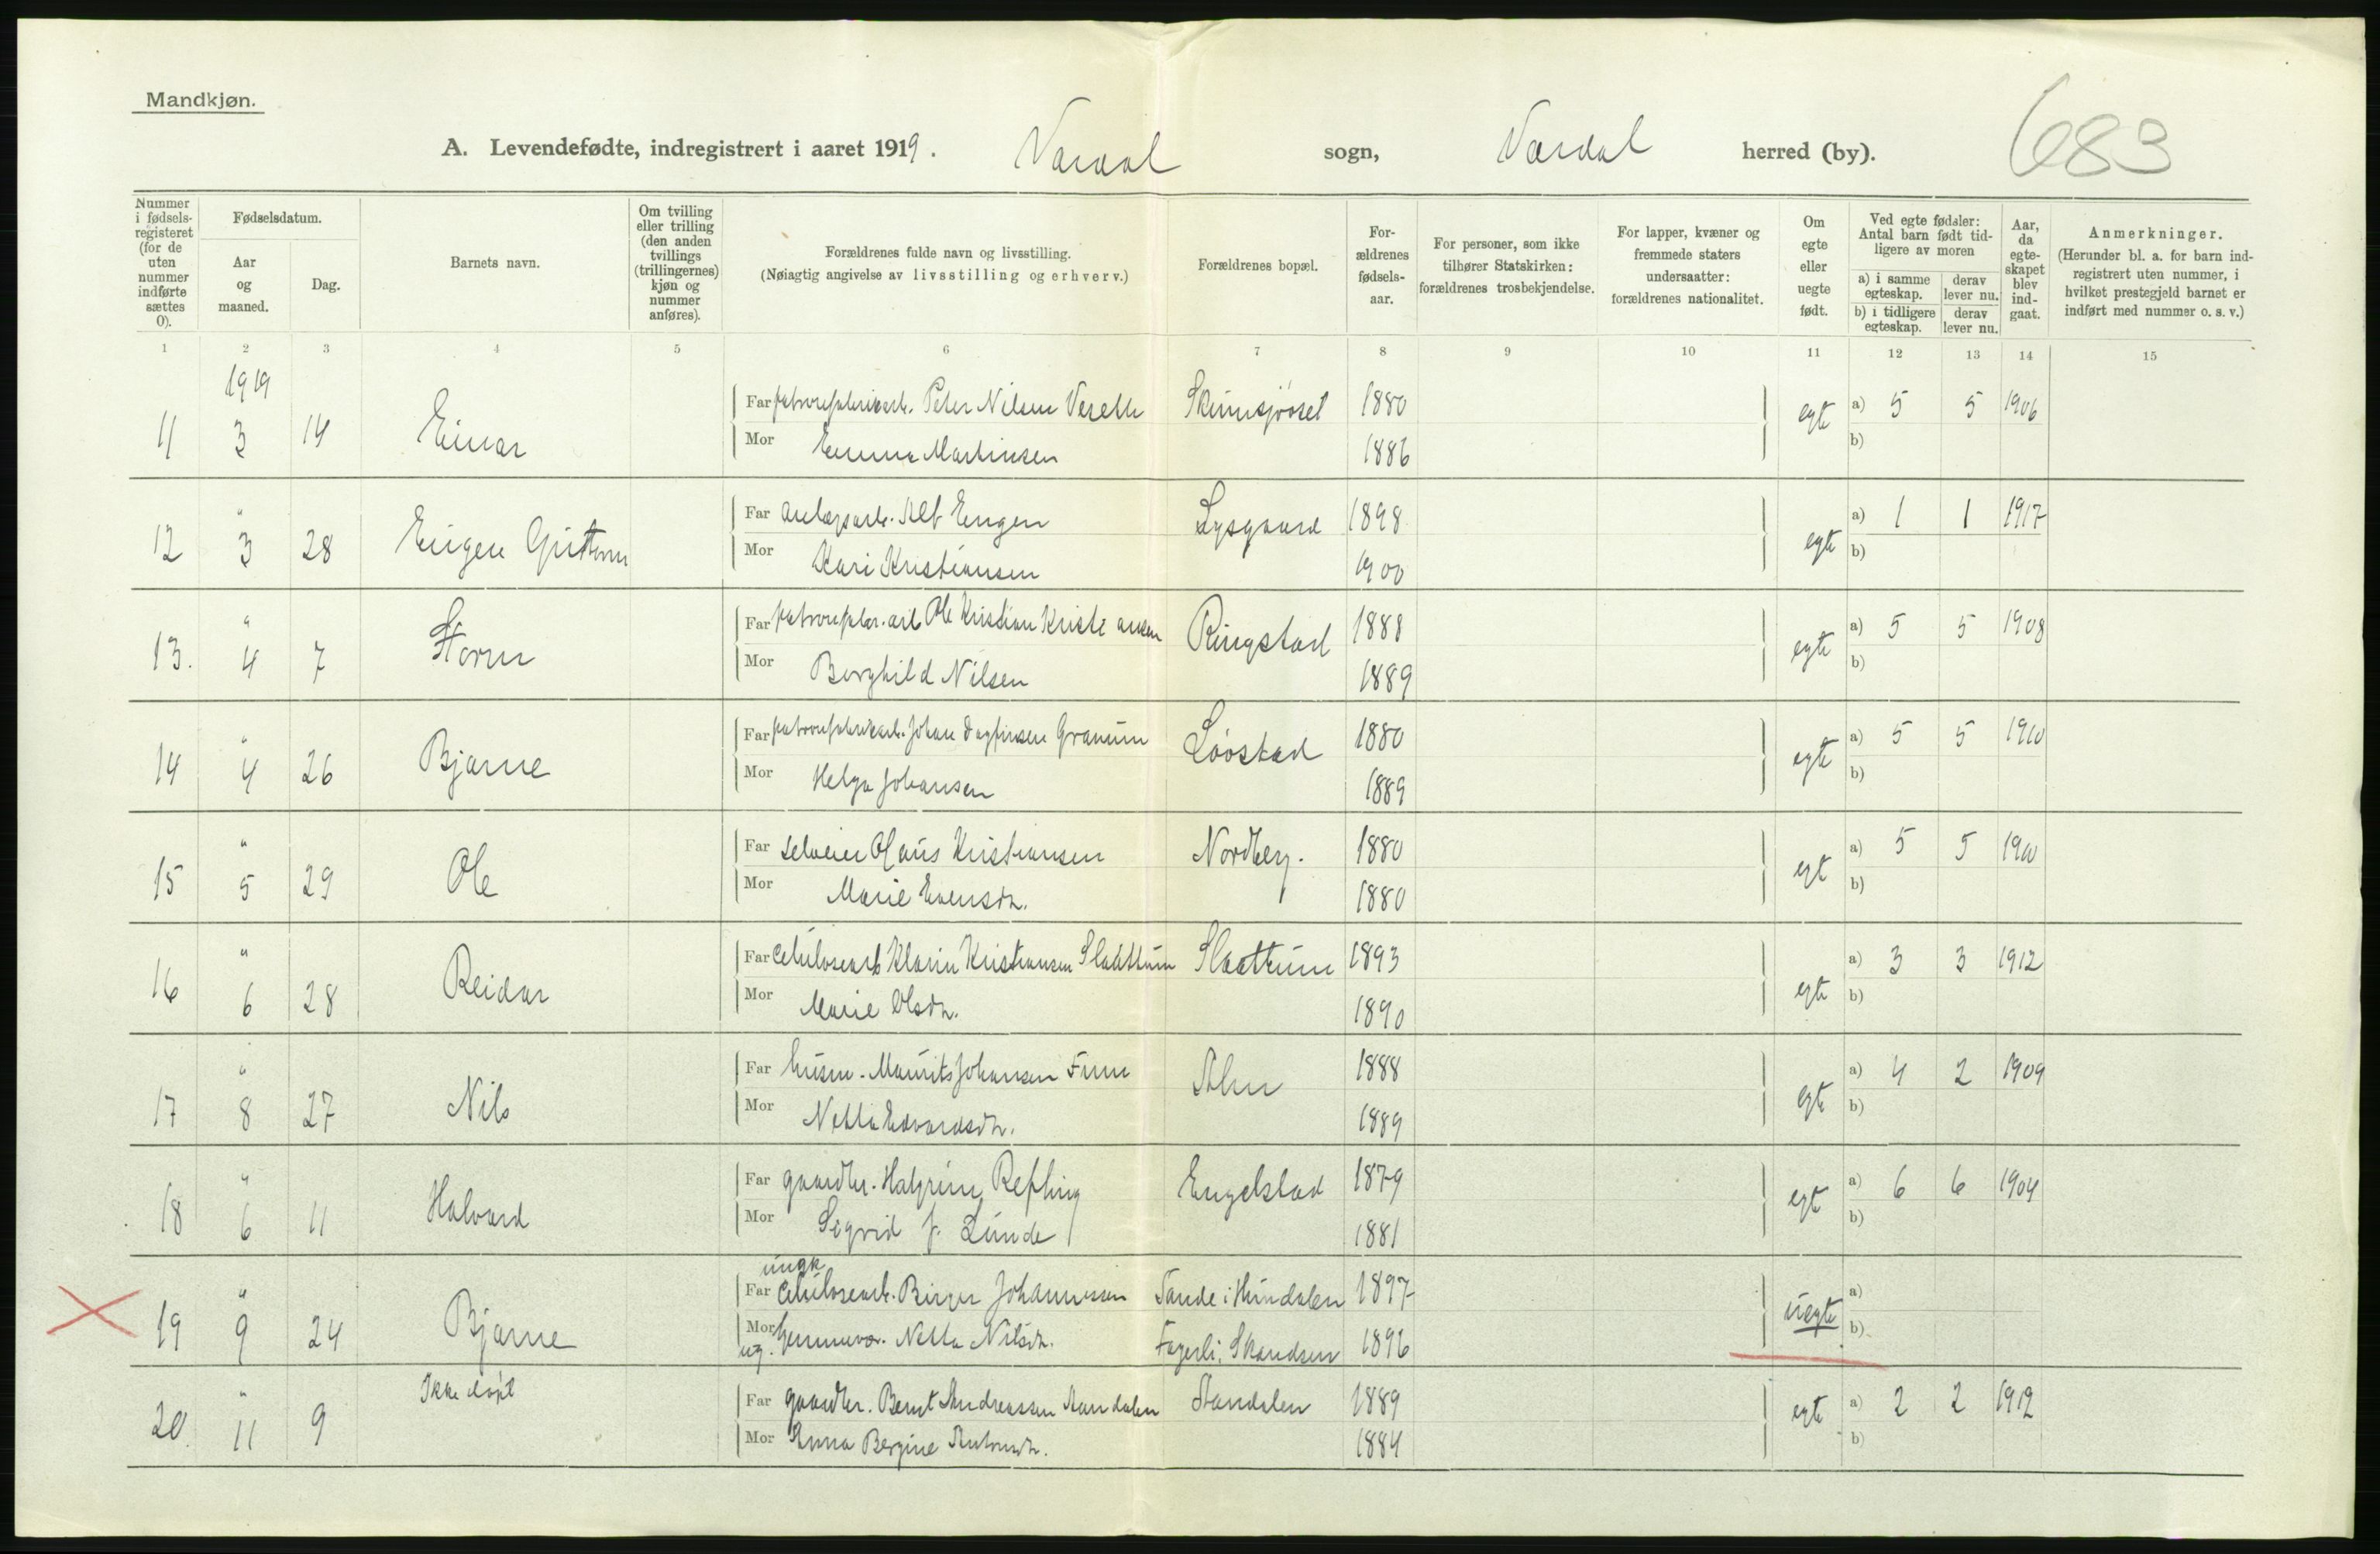 Mandkjøn.
A. Levendefødte, indregistrert i aaret 1919. Vardal sogn, Vardal herred (by). 683
Nummer i fødsels-registeret (for de uten nummer indførte sættes 0).
Fødselsdatum.
Aar og maaned.
Dag.
Barnets navn.
Om tvilling eller trilling (den anden tvillings (trillingernes) kjøn og nummer anføres).
Forældrenes fulde navn og livsstilling.
(Nøiagtig angivelse av livsstilling og erhverv.)
Forældrenes bopæl.
For-ældrenes fødsels-aar.
For personer, som ikke tilhører Statskirken: forældrenes trosbekjendelse.
For lapper, kvæner og fremmede staters undersaatter: forældrenes nationalitet.
Om egte eller uegte født.
Ved egte fødsler: Antal barn født tid-ligere av moren
a) i samme egteskap.
derav lever nu.
b) i tidligere egteskap.
derav lever nu.
Aar, da egte-skapet blev ind-gaat.
Anmerkninger.
(Herunder bl. a. for barn ind-registrert uten nummer, i hvilket prestegjeld barnet er indført med nummer o. s. v.)
1 2 3 4 5 6 7 8 9 10 11 12 13 14 15
1919
Far Peter Nilsen 1880 a) 5 5 1906
11 3 14 Einar egte
Mor Emma Martinsen 1886 b)
" Far anlegsarb. Alf Engen Lysgaard 1898 a) 1 1 1917
12 3 28 egte
Mor Kari Kristiansen 1900 b)
" Far Ole Kristian Kristiansen Ringstad 1888 a) 5 5 1908
13. 4 7 Storm egte
Mor Borghild Nilsen 1889 b)
" Far Johan Dagfinsen Granum Lööstad 1880 a) 5 5 1910
14 4 26 Bjarne egte
Mor Helga Johansen 1889 b)
" Far selveier Olaus Kristiansen Nordberg. 1880 a) 5 5 1900
15 5 29 Ole egt
Mor Marie Evensdr. 1880 b)
" Far Celulosearb Klarin Kristiansen Slaattum Slaattum 1893 a) 3 3 1912
16 6 28 Reidar egte
Mor Marie Olsdr. 1890 b)
" Far husm. Maurits Johansen Alm 1888 a) 4 2 1909
17 8 27 Nils egte
Mor Edvardsdr. 1889 b)
" Far gaardbr. Halgrim Refling Engelstad 1879 a) 6 6 1904
18 6 11 Halvard egt
Mor Sigrid J. Lunde 1881 b)
ungk
" Far Celulosearb. Birger Johannessen Sande i Hundalen 1897 a)
19 9 24 Bjarne uegte
Mor ug. Nilsdr. Fagerli, 1896 b)
Ikke döpt
" Far gaardbr. Bernt Andreassen 1889 a) 2 2 1912
20. 11 9 egte
Mor Anna Bergine 1884 b)